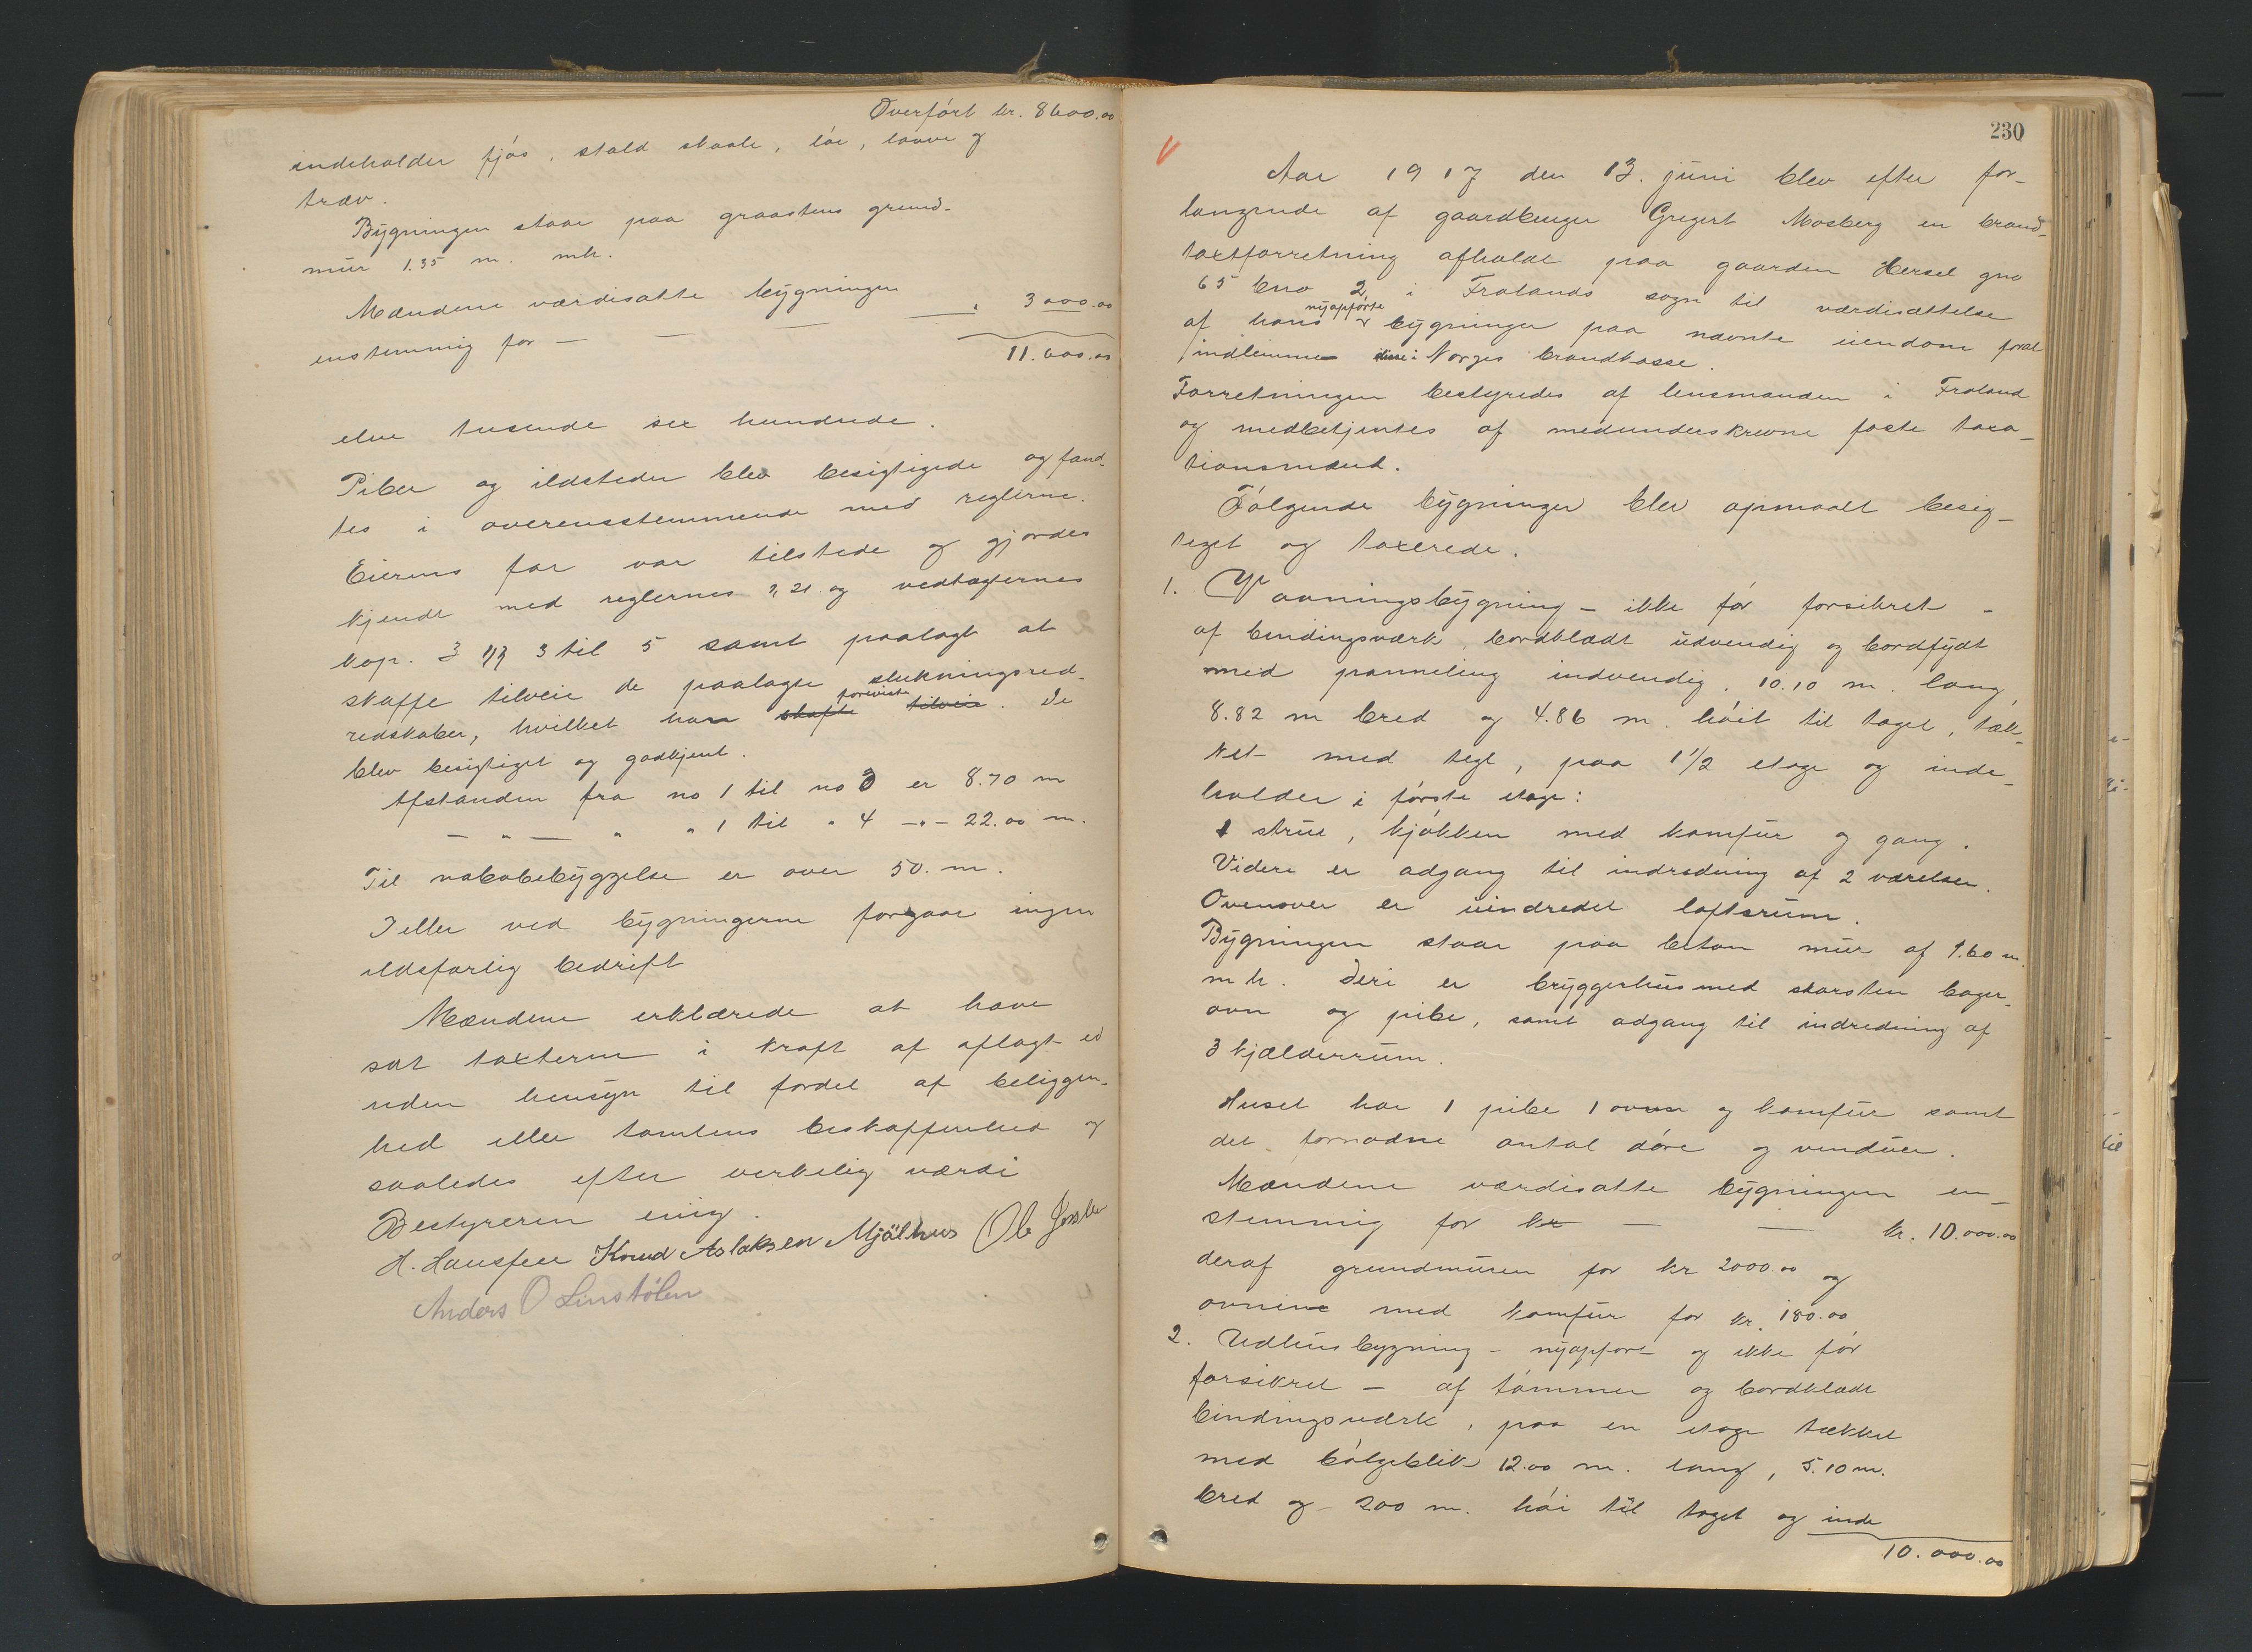 Overført kr. 8600.00
indeholder fjøs, stald skaale, løe, laave og
træv.
Bygningen staar paa graastens grund-
mur 1.35 m. mh.
Mændene værdisatte bygningen
enstemmig for — — — " 3000.00
11.600.00
elve tusende sex hundrede.
Piber og ildsteder blev besigtigede og fand-
tes i overensstemmende med reglerne.
Eierens far var tilstede og gjordes
kjendt med reglernes § 21 og vedtægternes
kap. 3 §§ 3 til 5 samt paalagt at
skaffe tilveie de paalagte slukningsred-
redskaber, hvilket han skafte tilveie foreviste. De
blev besigtiget og godkjent.
Afstanden fra no 1 til no 3 er 8.70 m
— " — " " 1 til " 4 —"— 22.00 m.
Til nabobebyggelse er over 50. m.
I eller ved bygningerne foregaar ingen
ildsfarlig bedrift
Mændene erklærede at have
sat taxterne i kraft af aflagt ed
uden hensyn til fordel af beliggen-
hed eller tomtens beskaffenhed og
saaledes efter verkelig værdi
Bestyreren enig.
H. Hansen Knud Aslaksen Mjålhus Ole
Anders O Linstølen
230
V
Aar 1917 den 13. juni blev efter for-
langende af gaardbruger Gregert Mosberg en brand-
taxtforretning afholdt paa gaarden Hersel gno
65 bno 2 i Frolands sogn til værdisættelse
af hans nyopførte bygninger paa nævnte eiendom for at
indlemmes disse i Norges brandkasse.
Forretningen bestyredes af lensmanden i Froland
og medbetjentes af medunderskrevne faste taxa-
tionsmænd.
Følgende bygninger blev opmaalt besig-
tiget og taxerede.
1. Vaaningsbygning — ikke før forsikret —
af bindingsværk, bordklædt udvendig og bordfydt
med panneling indvendig, 10.10 m. lang,
8.82 m bred og 4.86 m. høit til taget, tæk-
ket med tegl, paa 1 1/2 etage og inde-
holder i første etage:
1 stue, kjøkken med komfur og gang.
Videre er adgang til indredning af 2 værelser.
Ovenover er uindredet loftsrum.
Bygningen staar paa beton mur af 1.60 m.
m h. Deri er bryggerhus med skorsten bager-
ovn og pibe, samt adgang til indredning af
3 kjælderrum.
Huset har 1 pibe 1 ovn og komfur samt
det fornødne antal døre og vinduer.
Mændene værdisatte bygningen en-
stemmig for kr — — kr. 10.000.00
deraf grundmuren for kr 2000.00 og
ovnene med komfur for kr. 180.00
2. Udhusbygning — nyopført og ikke før
forsikret — af tømmer og bordklædt
bindingsværk, paa en etage tækket
med bølgeblik 12.00 m. lang, 5.10 m.
bred og 200 m. høi til taget og inde
10.000.00